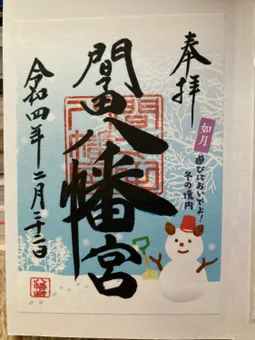 奉拝
如月
遊びにおいでよ!
冬の境内
間々田八幡宮
令和四年二月二十二日